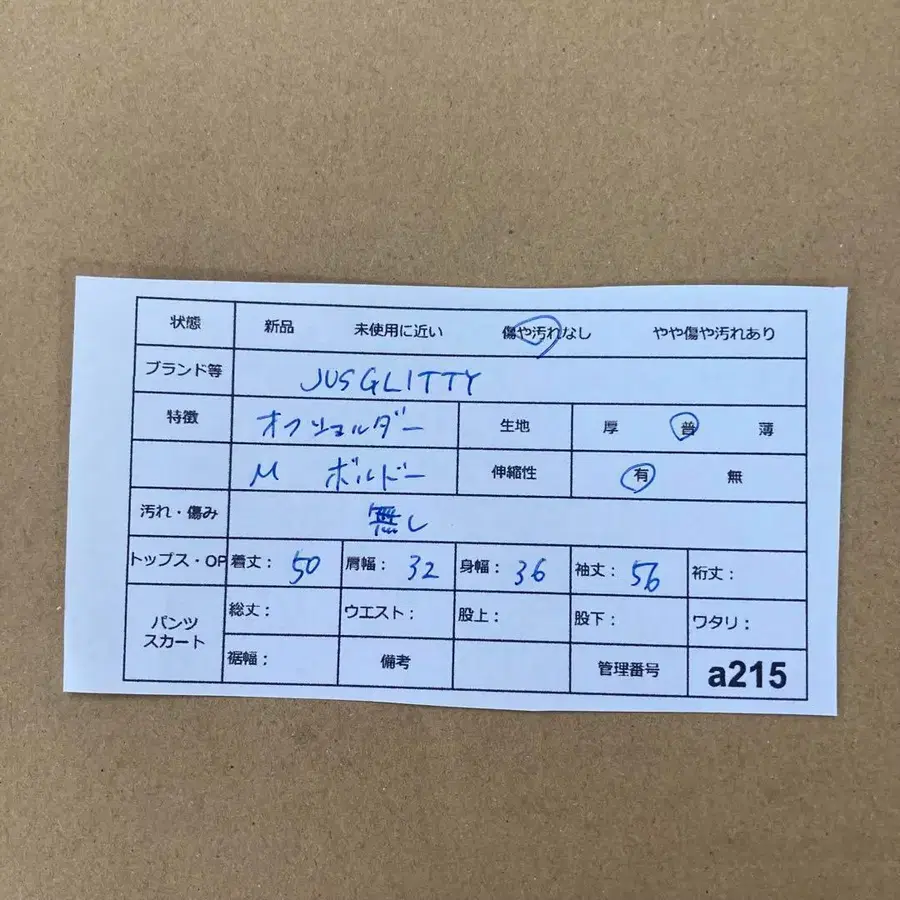 状態 新品 未使用に近い 傷や汚れなし やや傷や汚れあり
ブランド等 JUSGLITTY
特徴 オフショルダー 生地 厚 普 薄
M ボルドー 伸縮性 有 無
汚れ・傷み 無し
トップス・OP 着丈： 50 肩幅： 32 身幅： 36 袖丈： 56 裄丈：
パンツ スカート 総丈： ウエスト： 股上： 股下： ワタリ：
裾幅： 備考 管理番号 a215